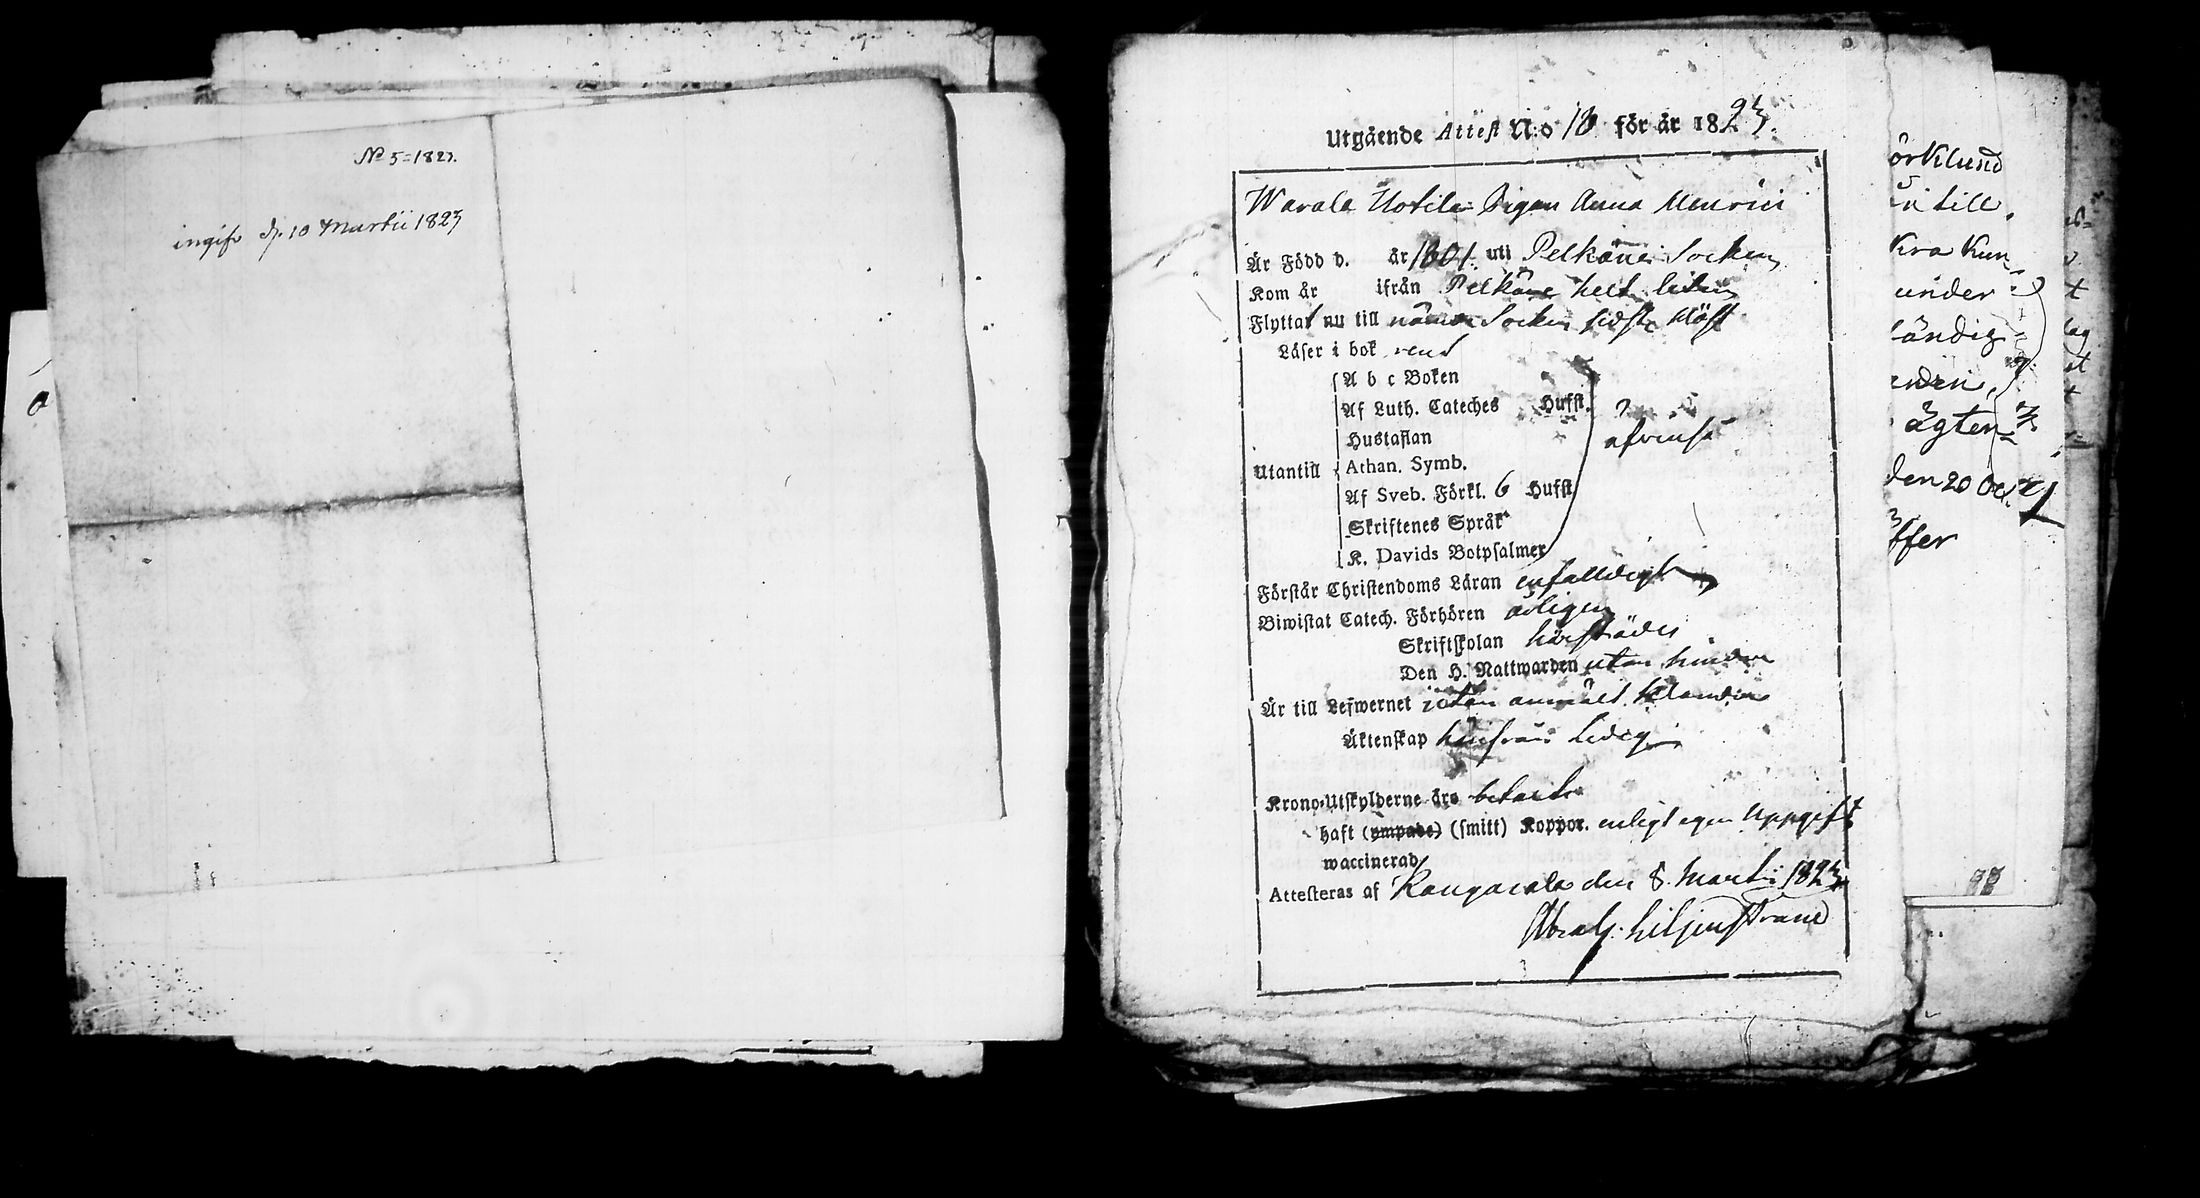 No 5=1823.
ingifv. d. 10 Martii 1823
Utgående Attest N:o 18 för år 1823.
Warala Uotila Pigan Anna Henrici
Är Född d. år 1801. uti Pelkäne Socken
Kom år ifrån Pelkäne helt liten
Flyttar nu till nämde Socken sidste Höst
Läser i bok rent
A b c Boken
Af Luth. Cateches Hufst.
Hustaflan
afvenså
Utantill
Athan. Symb.
Af Sveb. Förkl. 6 Hufst.
Skriftenes Språk
K. Davids Botpsalmer
Förstår Christendoms Läran enfalldigt
Biwistat Catech. Förhören årligen
Skriftskolan härstädes
Den H. Nattwarden utan hinder
Är till Lefwernet utan anmält klander
Äktenskap härifrån ledig
Krono-Utskylderne äro betalte
haft (ympade) (smitt) Koppor. enligt egen Uppgift
waccinerad
Attesteras af Kangasala den 8. Martii 1823
Abrah. Liljenstrand
örklund
n till
kra kun
under
ändig
ägten
den 20 Oct.
ffer
98